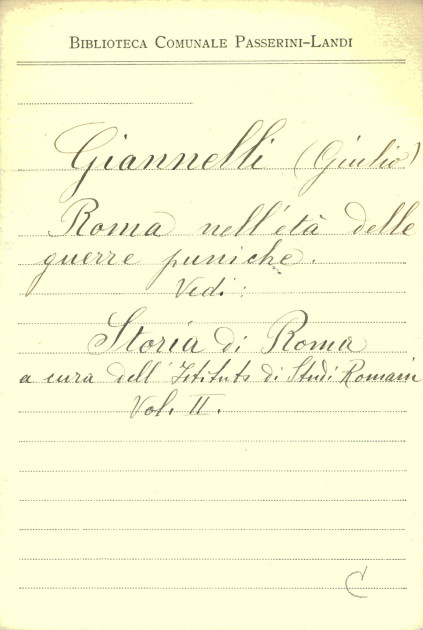 BIBLIOTECA COMUNALE PASSERINI-LANDI
Giannelli (Giulio)
Roma nell'età delle
guerre puniche.
Vedi:
Storia di Roma
a cura dell'Istituto di Studi Romani
Vol. II.
C